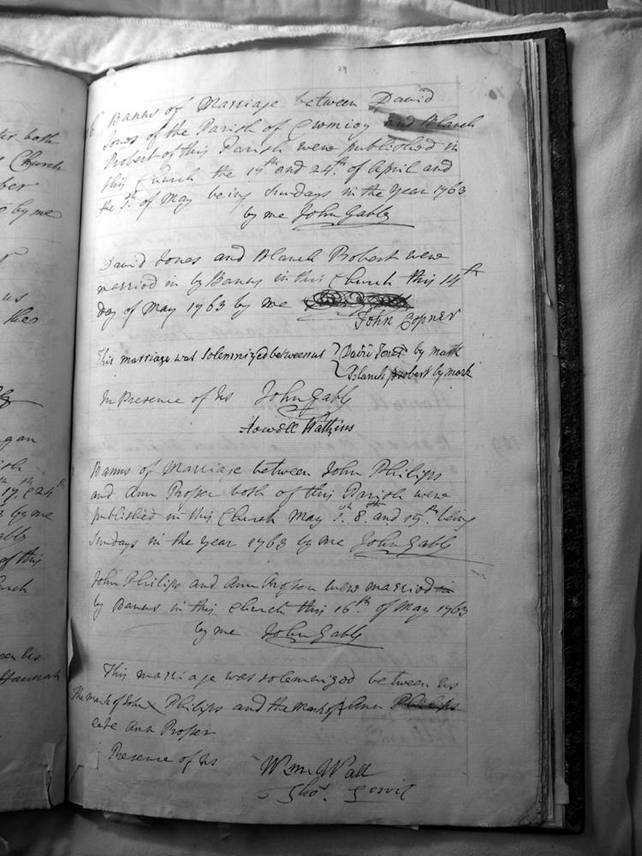 29
Banns of Marriage between David
Jones of the Parish of Cwmioy and Blanch
Probert of this Parish were published in
this Church the 17th and 24th of April and
the 1st of May being Sundays in the Year 1763
by me John Gabb
David Jones and Blanch Probert were
married in by Banns in this Church this 14th
day of May 1763 by me
John Copner
This marriage was solemnized between us David Jones by mark
Blanch probert by mark
In Presence of Us John Gabb
Howell Watkins
Banns of Marriage between John Philips
and Ann Prosser both of this Parish were
published in this Church May 1st 8th and 15th being
Sundays in the Year 1763 by me John Gabb
John Philips and Ann were married in
by Banns in this Church this 16th of May 1763
by me John Gabb
This marriage was solemnized between us
The mark of John X Philips and the mark of X Ann Philips
late Ann Prosser
Presence of Us Wm Wall
Thos.
ter both
Church
ber
by me
us
gan
17 & 24th
by me
of this
Hannah